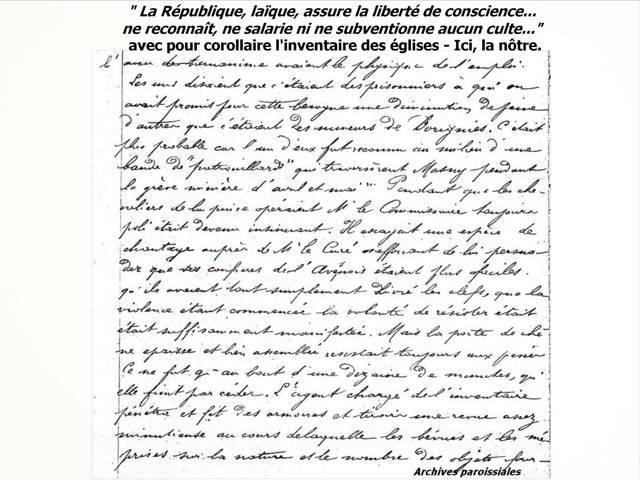 " La République, laïque, assure la liberté de conscience...
ne reconnaît, ne salarie ni ne subventionne aucun culte..."
avec pour corollaire l'inventaire des églises - Ici, la nôtre.
l' aveu des humanisme avaient le physique de l'emploi.
Les uns disaient que c'étaient des prisonniers à qui on
avait promis pour cette besogne une diminution de peine
d'autres que c'étaient des mineurs de Dorignies. C'était
plus probable car l'un d'eux fut reconnu au milieu d'une
bande de "patrouillards" qui traversèrent Masny pendant
la grève minière d'avril et mai Pendant que les che-
valiers de la pince opéraient Mr le Commissaire toujours
poli était devenu insinuant. Il essayait une espèce de
chantage auprès de Mr le Curé s'efforçant de lui persua-
der que ses confrères de l'Avesnois étaient plus dociles.
qu'ils avaient tout simplement livré les clefs, que la
violence étant commencée la volonté de résister était
était suffisamment manifestée. Mais la porte de chê-
ne épaisse et bien assemblée résistait toujours aux pesées
Ce ne fut qu'au bout d'une dizaine de minutes, qu'
elle finit par céder. L'agent chargé de l'inventaire
pénétra et fit des armoires et tiroirs une revue assez
minutieuse au cours de laquelle les bévues et les mé-
prises sur la nature et le nombre des objets four-
Archives paroissiales